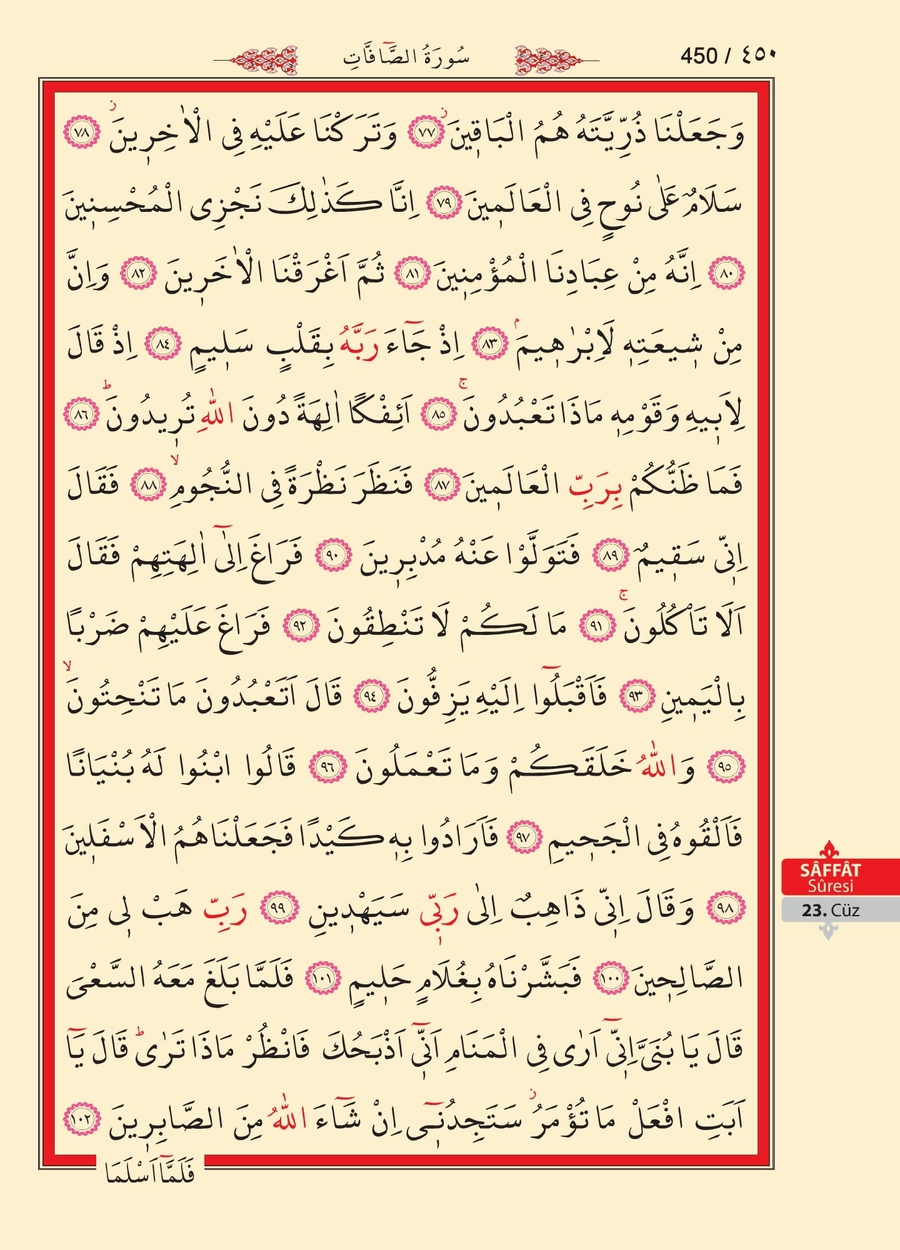 450 / ٤٥٠
سُورَةُ الصَّٓافَّاتِ
وَجَعَلْنَا ذُرِّيَّتَهُ هُمُ الْبَاق۪ينَۘ ﴿٧٧﴾ وَتَرَكْنَا عَلَيْهِ فِي الْاٰخِر۪ينَۘ ﴿٧٨﴾
سَلَامٌ عَلٰى نُوحٍ فِي الْعَالَم۪ينَ ﴿٧٩﴾ اِنَّا كَذٰلِكَ نَجْزِي الْمُحْسِن۪ينَ
﴿٨٠﴾ اِنَّهُ مِنْ عِبَادِنَا الْمُؤْمِن۪ينَ ﴿٨١﴾ ثُمَّ اَغْرَقْنَا الْاٰخَر۪ينَ ﴿٨٢﴾ وَاِنَّ
مِنْ ش۪يعَتِه۪ لَاِبْرٰه۪يمَۢ ﴿٨٣﴾ اِذْ جَٓاءَ رَبَّهُ بِقَلْبٍ سَل۪يمٍ ﴿٨٤﴾ اِذْ قَالَ
لِاَب۪يهِ وَقَوْمِه۪ مَاذَا تَعْبُدُونَۚ ﴿٨٥﴾ اَئِفْكًا اٰلِهَةً دُونَ اللّٰهِ تُر۪يدُونَۜ ﴿٨٦﴾
فَمَا ظَنُّكُمْ بِرَبِّ الْعَالَم۪ينَ ﴿٨٧﴾ فَنَظَرَ نَظْرَةً فِي النُّجُومِۙ ﴿٨٨﴾ فَقَالَ
اِنّ۪ي سَق۪يمٌ ﴿٨٩﴾ فَتَوَلَّوْا عَنْهُ مُدْبِر۪ينَ ﴿٩٠﴾ فَرَاغَ اِلٰٓى اٰلِهَتِهِمْ فَقَالَ
اَلَا تَأْكُلُونَۚ ﴿٩١﴾ مَا لَكُمْ لَا تَنْطِقُونَ ﴿٩٢﴾ فَرَاغَ عَلَيْهِمْ ضَرْبًا
بِالْيَم۪ينِ ﴿٩٣﴾ فَاَقْبَلُٓوا اِلَيْهِ يَزِفُّونَ ﴿٩٤﴾ قَالَ اَتَعْبُدُونَ مَا تَنْحِتُونَۙ
﴿٩٥﴾ وَاللّٰهُ خَلَقَكُمْ وَمَا تَعْمَلُونَ ﴿٩٦﴾ قَالُوا ابْنُوا لَهُ بُنْيَانًا
فَاَلْقُوهُ فِي الْجَح۪يمِ ﴿٩٧﴾ فَاَرَادُوا بِه۪ كَيْدًا فَجَعَلْنَاهُمُ الْاَسْفَل۪ينَ
﴿٩٨﴾ وَقَالَ اِنّ۪ي ذَاهِبٌ اِلٰى رَبّ۪ي سَيَهْد۪ينِ ﴿٩٩﴾ رَبِّ هَبْ ل۪ي مِنَ
الصَّالِح۪ينَ ﴿١٠٠﴾ فَبَشَّرْنَاهُ بِغُلَامٍ حَل۪يمٍ ﴿١٠١﴾ فَلَمَّا بَلَغَ مَعَهُ السَّعْيَ
قَالَ يَا بُنَيَّ اِنّ۪ٓي اَرٰى فِي الْمَنَامِ اَنّ۪ٓي اَذْبَحُكَ فَانْظُرْ مَاذَا تَرٰىۜ قَالَ يَٓا
اَبَتِ افْعَلْ مَا تُؤْمَرُۘ سَتَجِدُن۪ٓي اِنْ شَٓاءَ اللّٰهُ مِنَ الصَّابِر۪ينَ ﴿١٠٢﴾
فَلَمَّٓا اَسْلَمَا
SÂFFÂT
Sûresi
23. Cüz